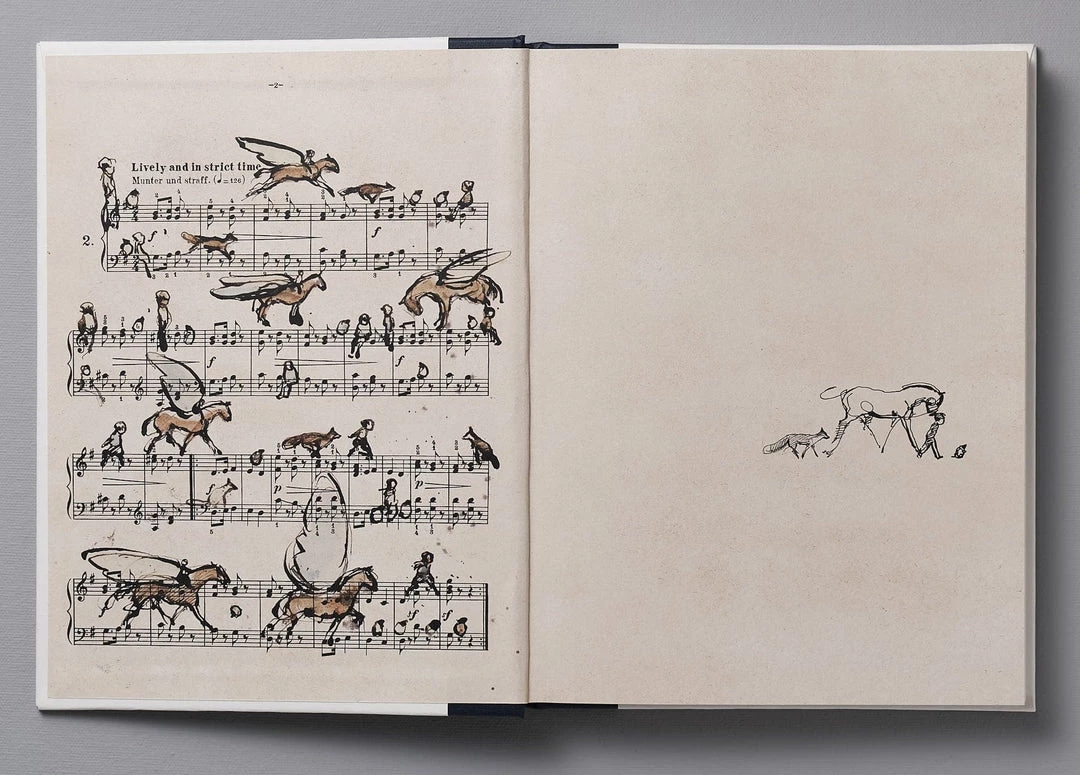 -2-
Lively and in strict time
Munter und straff. (♩=126)
2.
f
f
f
f
p
p
sf
sf